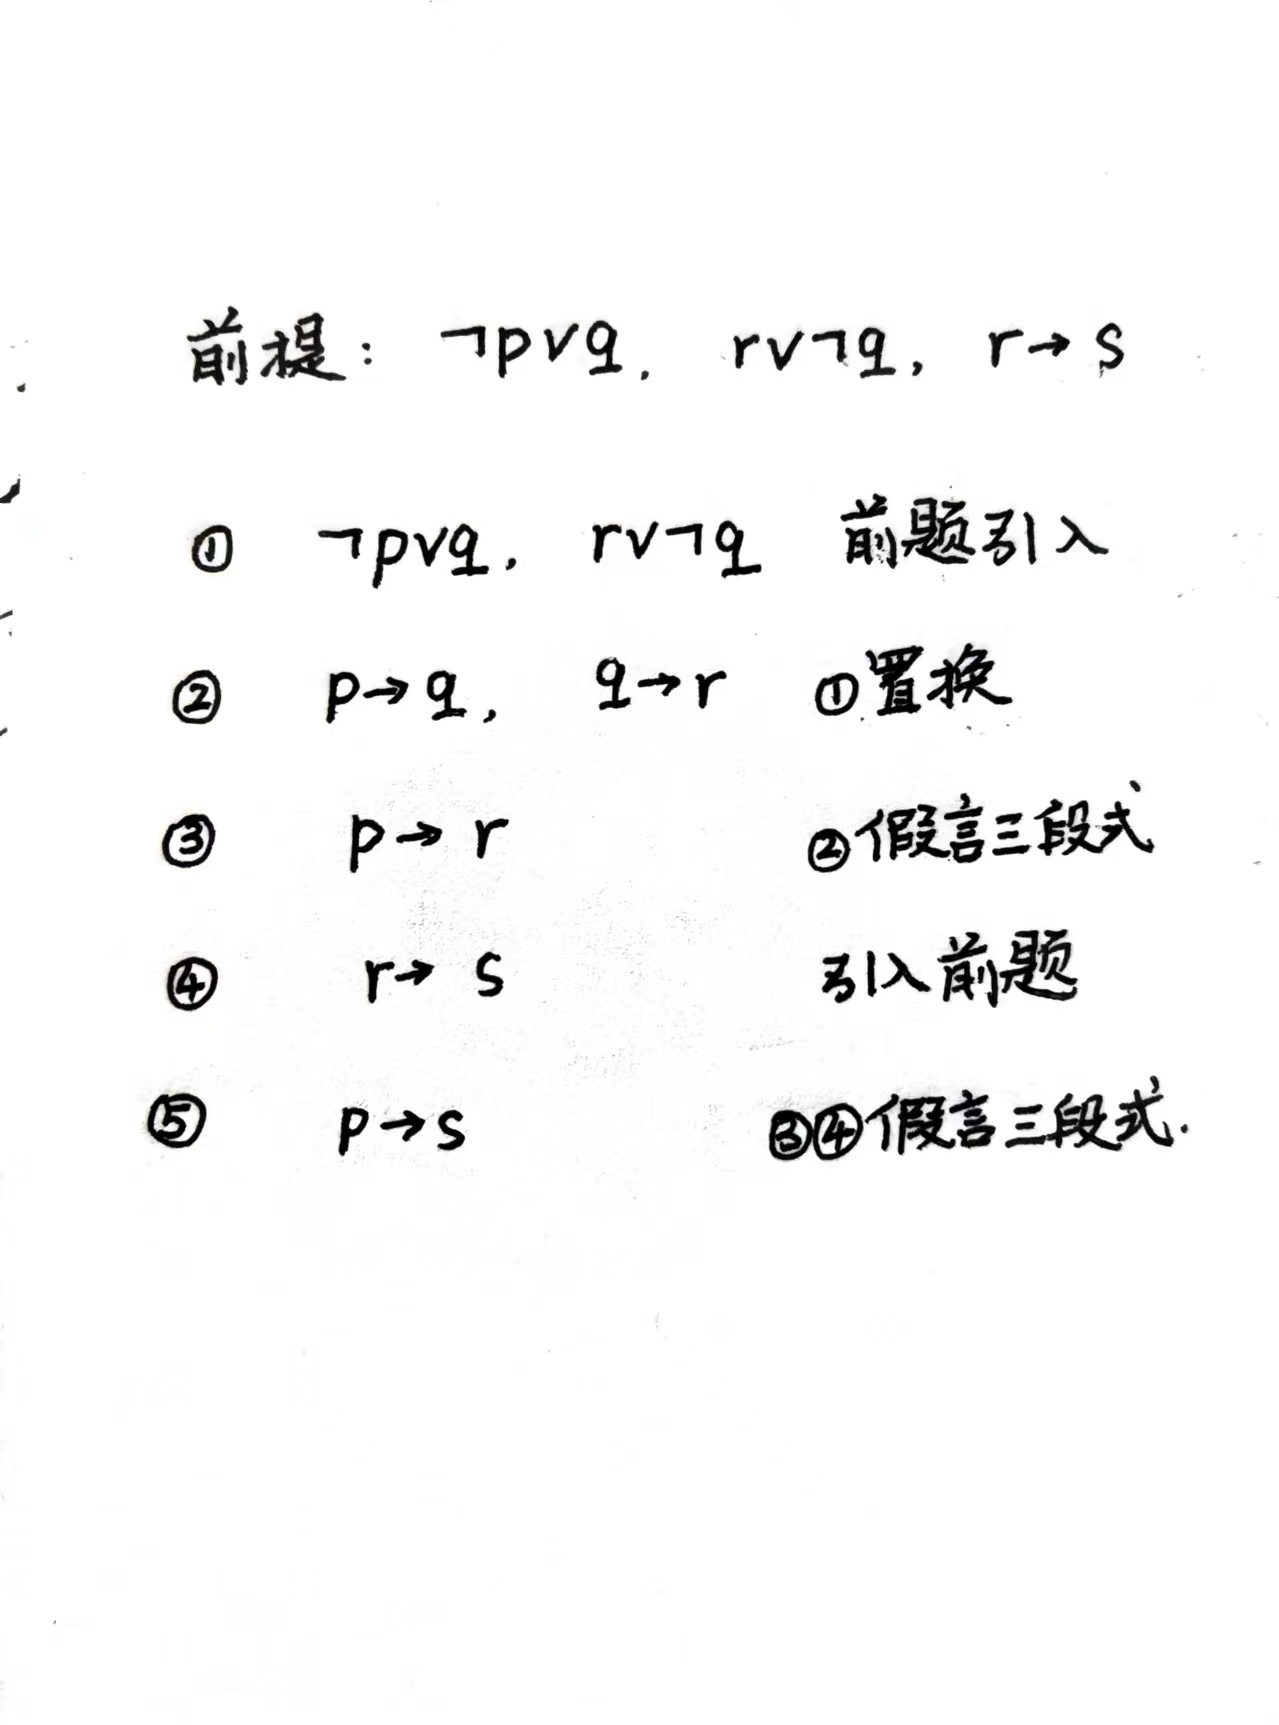 前提: ¬p∨q, r∨¬q, r→s
① ¬p∨q, r∨¬q 前题引入
② p→q, q→r ①置换
③ p→r ②假言三段式
④ r→s 引入前题
⑤ p→s ③④假言三段式.